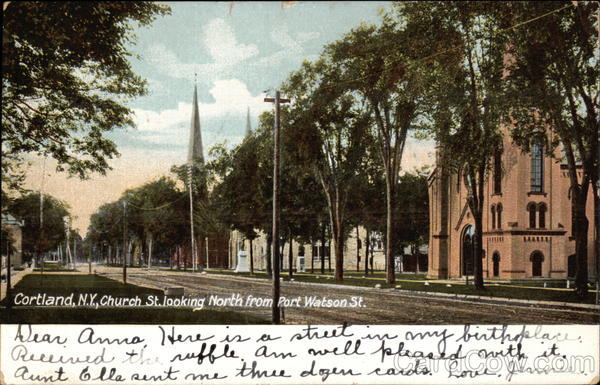 Cortland, N.Y., Church St. looking North from Port Watson St.
Dear Anna. Here is a street in my birthplace.
Received the ruffle. Am well pleased with it.
Aunt Ella sent me three dozen cards. Love,
CardCow.com